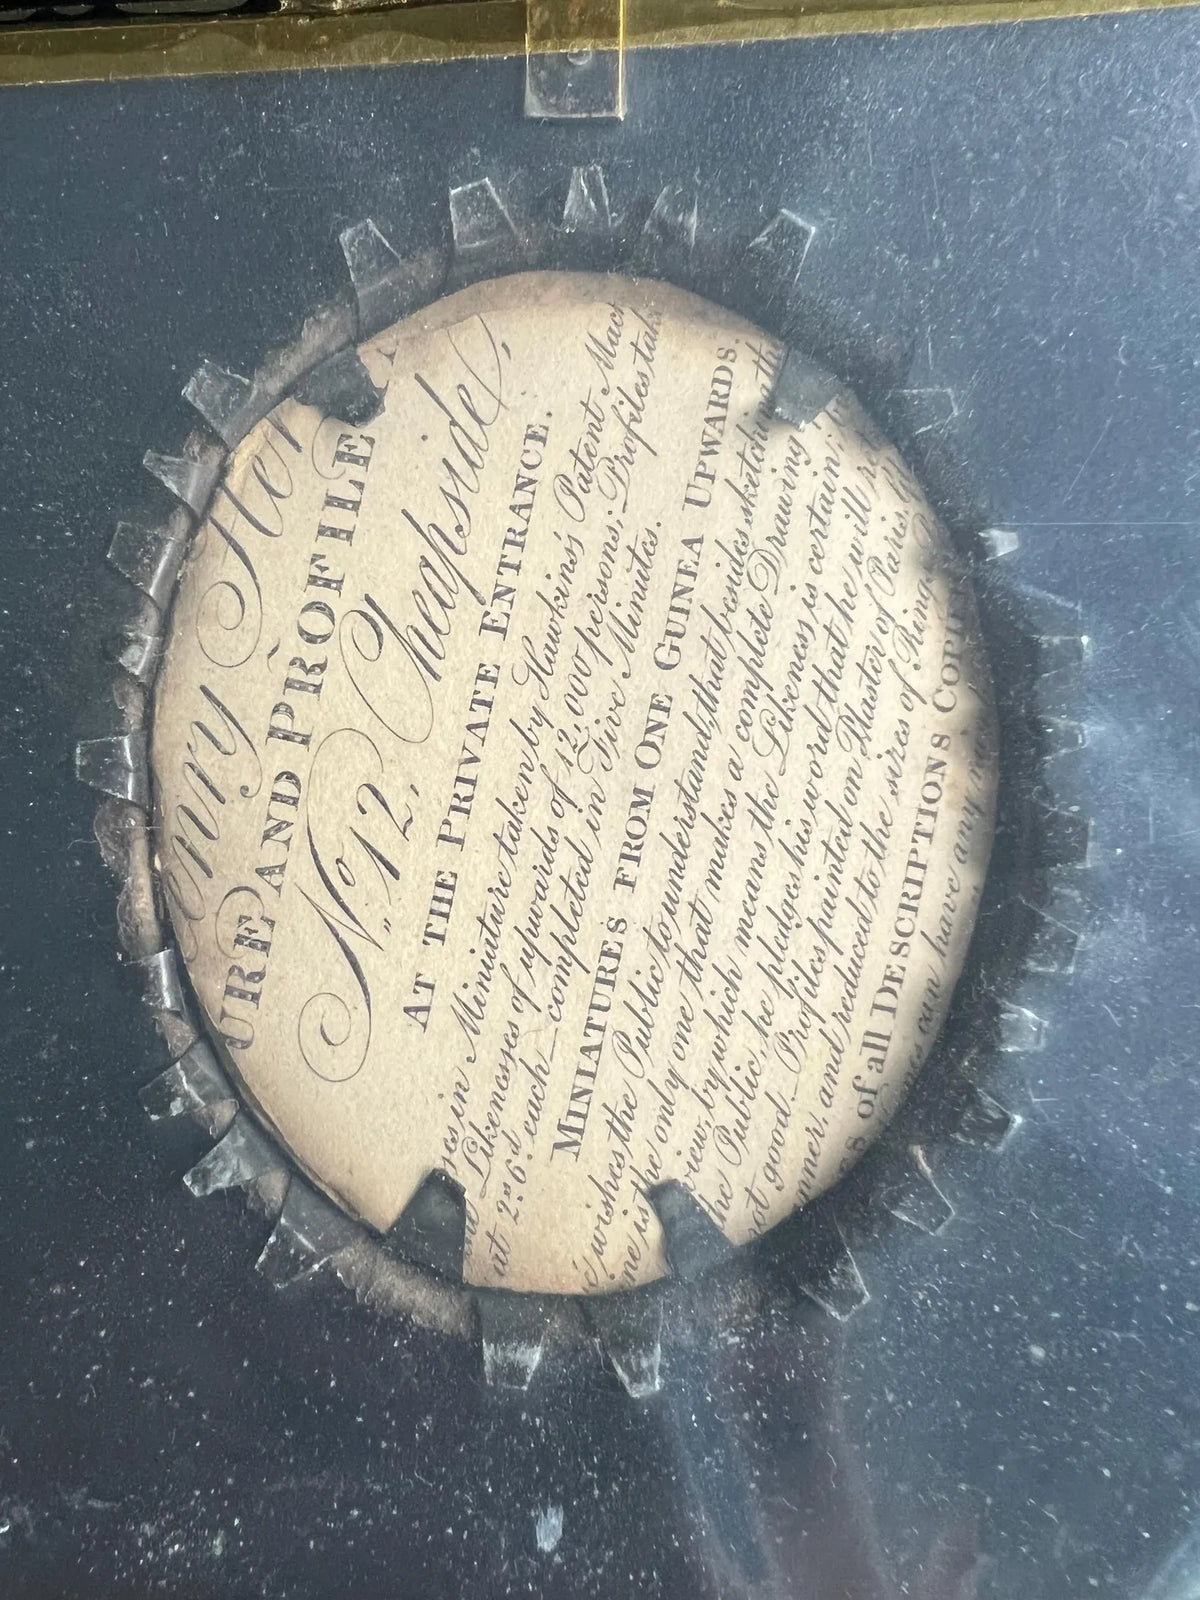 enry Her
URE AND PROFILE
No. 12, Cheapside,
AT THE PRIVATE ENTRANCE.
ses in Miniature taken by Hawkins's Patent Mach
Likenesses of upwards of 12,000 persons; Profiles tak
at 2s. 6d. each — completed in Five Minutes.
MINIATURES FROM ONE GUINEA UPWARDS.
wishes the Public to understand, that besides sketching th
ne is the only one that makes a complete Drawing
view, by which means the Likeness is certain
he Public, he pledges his word that he will
not good — Profiles painted on Plaster of Paris,
nner, and reduced to the sizes of Rings,
S of all DESCRIPTIONS COPI
can have any